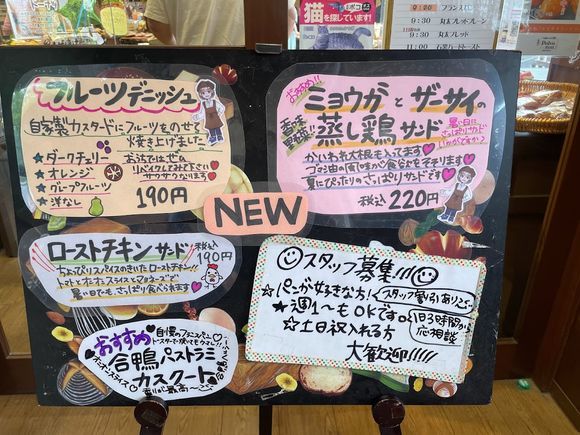 猫
を探しています!
9:30 丸太ブレッドプレーン
9:30 丸太ブレッド
11:00
フルーツデニッシュ
自家製カスタードにフルーツをのせて
焼き上げました
★ダークチェリー
★オレンジ
★グレープフルーツ
★洋なし
お店では
リベイクしてみて下さい
サクサクになります♥
190円
おすすめ!!
ミョウガとザーサイの
香味野菜!!
蒸し鶏サンド
暑い日に
さっぱりサンド
いかがですか
かいわれ大根も入ってます♥
ゴマ油の風味が食欲をそそります♥
夏にぴったりのさっぱりサンドです♥
税込220円
NEW
ローストチキンサンド 税込190円
ちょっぴりスパイスのきいたローストチキン!!
トマトとオニオンスライスとマヨネーズで
暑い日でも、さっぱり食べられます
おすすめ
合鴨パストラミ
カスクート
オニオンスライス
香りが最高〜
スタッフ募集!!!
☆パンが好きな方!
スタッフ割引あり
★週1〜もOKです
1日3時間から
応相談
☆土日祝入れる方
大歓迎!!!!!